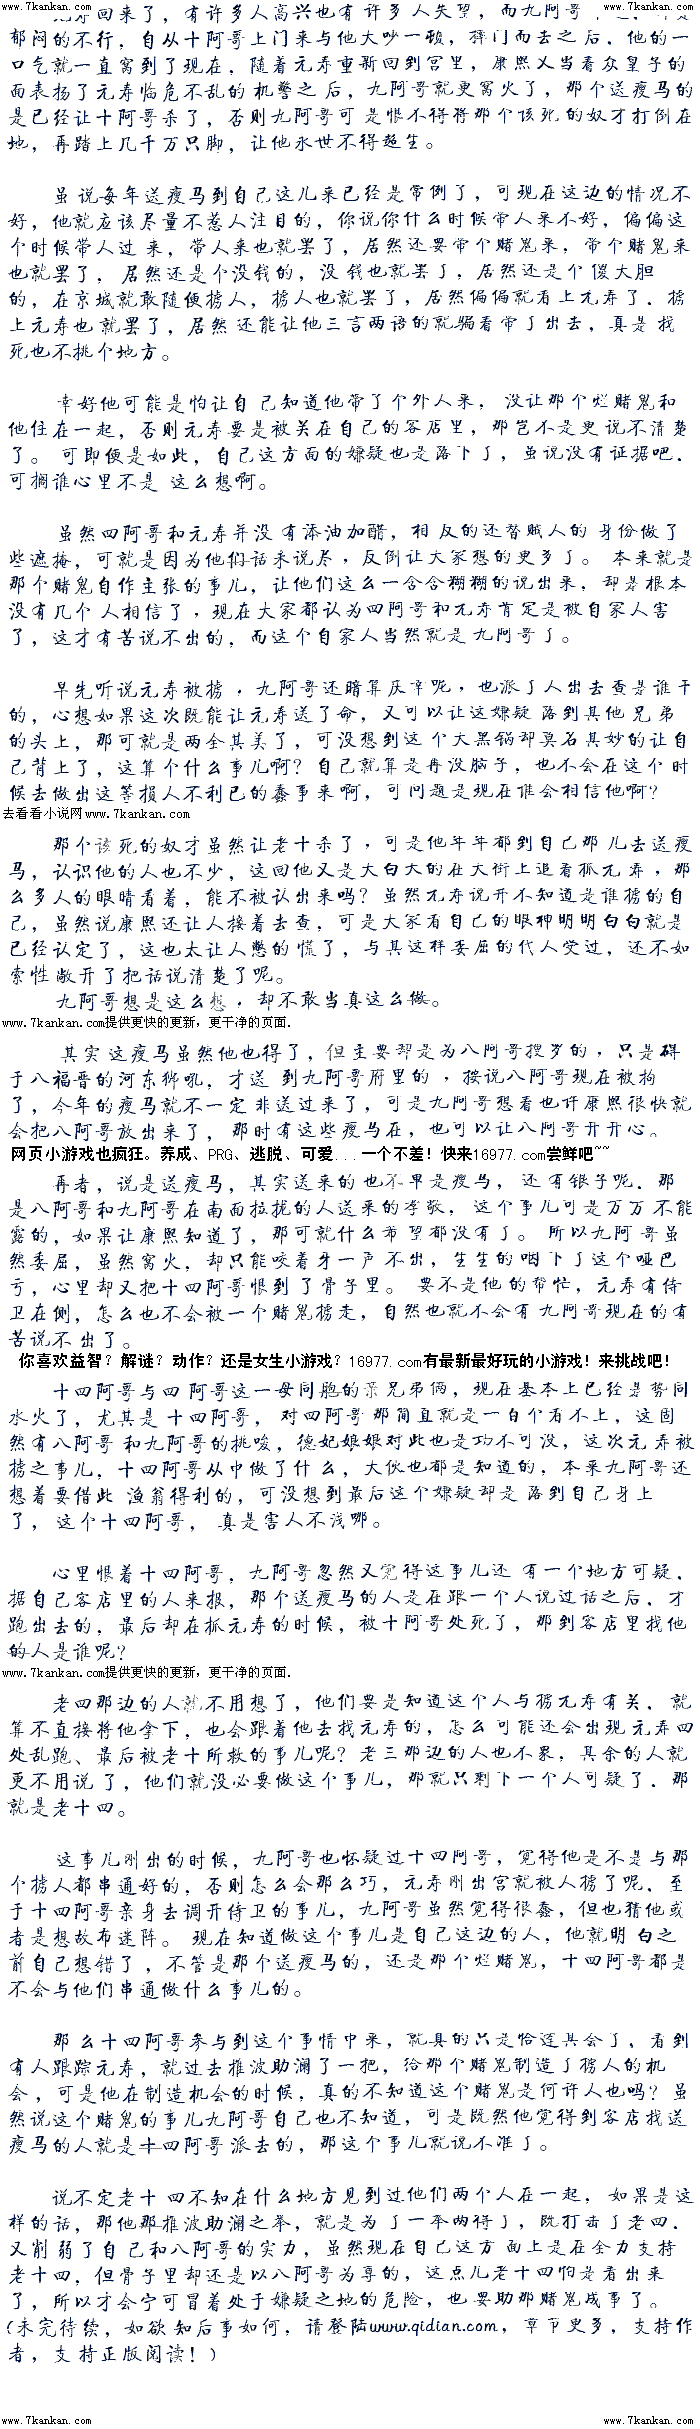 www.7kankan.com www.7kankan.com
元寿回来了，有许多人高兴也有许多人失望，而九阿哥
郁闷的不行，自从十阿哥上门来与他大吵一顿，摔门而去之后，他的一
口气就一直窝到了现在，随着元寿重新回到宫里，康熙又当着众皇子的
面表扬了元寿临危不乱的机警之后，九阿哥就更窝火了，那个送瘦马的
是已经让十阿哥杀了，否则九阿哥可是恨不得将那个该死的奴才打倒在
地，再踏上几千万只脚，让他永世不得超生。
虽说每年送瘦马到自己这儿来已经是常例了，可现在这边的情况不
好，他就应该尽量不惹人注目的，你说你什么时候带人来不好，偏偏这
个时候带人过来，带人来也就罢了，居然还要带个赌鬼来，带个赌鬼来
也就罢了，居然还是个没钱的，没钱也就罢了，居然还是个傻大胆
的，在京城就敢随便掳人，掳人也就罢了，居然偏偏就看上元寿了，掳
上元寿也就罢了，居然还能让他三言两语的就骗着带了出去，真是找
死也不挑个地方。
幸好他可能是怕让自己知道他带了个外人来，没让那个烂赌鬼和
他住在一起，否则元寿要是被关在自己的客店里，那岂不是更说不清楚
了。可即便是如此，自己这方面的嫌疑也是落下了，虽说没有证据吧，
可搁谁心里不是这么想啊。
虽然四阿哥和元寿并没有添油加醋，相反的还替贼人的身份做了
些遮掩，可就是因为他们话来说尽，反倒让大家想的更多了。本来就是
那个赌鬼自作主张的事儿，让他们这么一含含糊糊的说出来，却是根本
没有几个人相信了，现在大家都认为四阿哥和元寿肯定是被自家人害
了，这才有苦说不出的，而这个自家人当然就是九阿哥了。
早先听说元寿被掳，九阿哥还暗算庆幸呢，也派了人出去查是谁干
的，心想如果这次既能让元寿送了命，又可以让这嫌疑落到其他兄弟
的头上，那可就是两全其美了，可没想到这个大黑锅却莫名其妙的让自
己背上了，这算个什么事儿啊？自己就算是再没脑子，也不会在这个时
候去做出这等损人不利已的蠢事来啊，可问题是现在谁会相信他啊？
去看看小说网www.7kankan.com
那个该死的奴才虽然让老十杀了，可是他年年都到自己那儿去送瘦
马，认识他的人也不少，这回他又是大白天的在大街上追着抓元寿，那
么多人的眼睛看着，能不被认出来吗？虽然元寿说并不知道是谁掳的自
己，虽然说康熙还让人接着去查，可是大家看自己的眼神明明白白就是
已经认定了，这也太让人憋的慌了，与其这样委屈的代人受过，还不如
索性敞开了把话说清楚了呢。
九阿哥想是这么想，却不敢当真这么做。
www.7kankan.com提供更快的更新，更干净的页面.
其实这瘦马虽然他也得了，但主要却是为八阿哥搜罗的，只是碍
于八福晋的河东狮吼，才送到九阿哥府里的，按说八阿哥现在被拘
了，今年的瘦马就不一定非送过来了，可是九阿哥想着也许康熙很快就
会把八阿哥放出来了，那时有这些瘦马在，也可以让八阿哥开开心。
网页小游戏也疯狂。养成、PRG、逃脱、可爱...一个不差！快来16977.com尝鲜吧~~
再者，说是送瘦马，其实送来的也不单是瘦马，还有银子呢。那
是八阿哥和九阿哥在南面拉拢的人送来的孝敬，这个事儿可是万万不能
露的，如果让康熙知道了，那可就什么希望都没有了。所以九阿哥虽
然委屈，虽然窝火，却只能咬着牙一声不出，生生的咽下了这个哑巴
亏，心里却又把十四阿哥恨到了骨子里。要不是他的帮忙，元寿有侍
卫在侧，怎么也不会被一个赌鬼掳走，自然也就不会有九阿哥现在的有
苦说不出了。
你喜欢益智？解谜？动作？还是女生小游戏？16977.com有最新最好玩的小游戏！来挑战吧！
十四阿哥与四阿哥这一母同胞的亲兄弟俩，现在基本上已经是势同
水火了，尤其是十四阿哥，对四阿哥那简直就是一百个看不上，这固
然有八阿哥和九阿哥的挑唆，德妃娘娘对此也是功不可没，这次元寿被
掳之事儿，十四阿哥从中做了什么，大伙也都是知道的，本来九阿哥还
想着要借此渔翁得利的，可没想到最后这个嫌疑却是落到自己身上
了，这个十四阿哥，真是害人不浅哪。
心里恨着十四阿哥，九阿哥忽然又觉得这事儿还有一个地方可疑，
据自己客店里的人来报，那个送瘦马的人是在跟一个人说过话之后，才
跑出去的，最后却在抓元寿的时候，被十阿哥处死了，那到客店里找他
的人是谁呢？
www.7kankan.com提供更快的更新，更干净的页面.
老四那边的人就不用想了，他们要是知道这个人与掳元寿有关，就
算不直接将他拿下，也会跟着他去找元寿的，怎么可能还会出现元寿四
处乱跑、最后被老十所救的事儿呢？老三那边的人也不象，其余的人就
更不用说了，他们就没必要做这个事儿，那就只剩下一个人可疑了，那
就是老十四。
这事儿刚出的时候，九阿哥也怀疑过十四阿哥，觉得他是不是与那
个掳人都串通好的，否则怎么会那么巧，元寿刚出宫就被人掳了呢，至
于十四阿哥亲身去调开侍卫的事儿，九阿哥虽然觉得很蠢，但也猜他或
者是想故布迷阵。现在知道做这个事儿是自己这边的人，他就明白之
前自己想错了，不管是那个送瘦马的，还是那个烂赌鬼，十四阿哥都是
不会与他们串通做什么事儿的。
那么十四阿哥参与到这个事情中来，就真的只是恰逢其会了，看到
有人跟踪元寿，就过去推波助澜了一把，给那个赌鬼制造了掳人的机
会，可是他在制造机会的时候，真的不知道这个赌鬼是何许人也吗？虽
然说这个赌鬼的事儿九阿哥自己也不知道，可是既然他觉得到客店找送
瘦马的人就是十四阿哥派去的，那这个事儿就说不准了。
说不定老十四不知在什么地方见到过他们两个人在一起，如果是这
样的话，那他那推波助澜之举，就是为了一举两得了，既打击了老四，
又削弱了自己和八阿哥的实力，虽然现在自己这方面上是在全力支持
老十四，但骨子里却还是以八阿哥为尊的，这点儿老十四怕是看出来
了，所以才会宁可冒着处于嫌疑之地的危险，也要助那赌鬼成事了。
(未完待续，如欲知后事如何，请登陆www.qidian.com，章节更多，支持作
者，支持正版阅读！)
www.7kankan.com www.7kankan.com